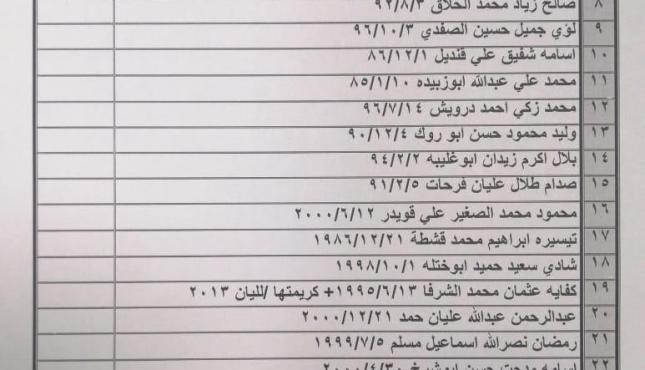 ٨ صالح زياد محمد الحلاق ٩٢/٨/٣
٩ لؤي جميل حسين الصفدي ٩٦/١٠/٣
١٠ اسامه شفيق علي قنديل ٨٦/١٢/١
١١ محمد علي عبدالله ابوزبيده ٨٥/١/١٠
١٢ محمد زكي احمد درويش ٩٦/٧/١٤
١٣ وليد محمود حسن ابو روك ٩٠/١٢/٤
١٤ بلال اكرم زيدان ابوغليبه ٩٤/٢/٢
١٥ صدام طلال عليان فرحات ٩١/٢/٥
١٦ محمود محمد الصغير علي قويدر ٢٠٠٠/٦/١٢
١٧ تيسيره ابراهيم محمد قشطة ١٩٨٦/١٢/٢١
١٨ شادي سعيد حميد ابوختله ١٩٩٨/١٠/١
١٩ كفايه عثمان محمد الشرفا ١٩٩٥/٦/١٣+ كريمتها /لليان ٢٠١٣
٢٠ عبدالرحمن عبدالله عليان حمد ٢٠٠٠/١٢/٢١
٢١ رمضان نصرالله اسماعيل مسلم ١٩٩٩/٧/٥
٢٢ اسامه مدحت حسن ابوشيخ ٢٠٠٠/٤/٣٠